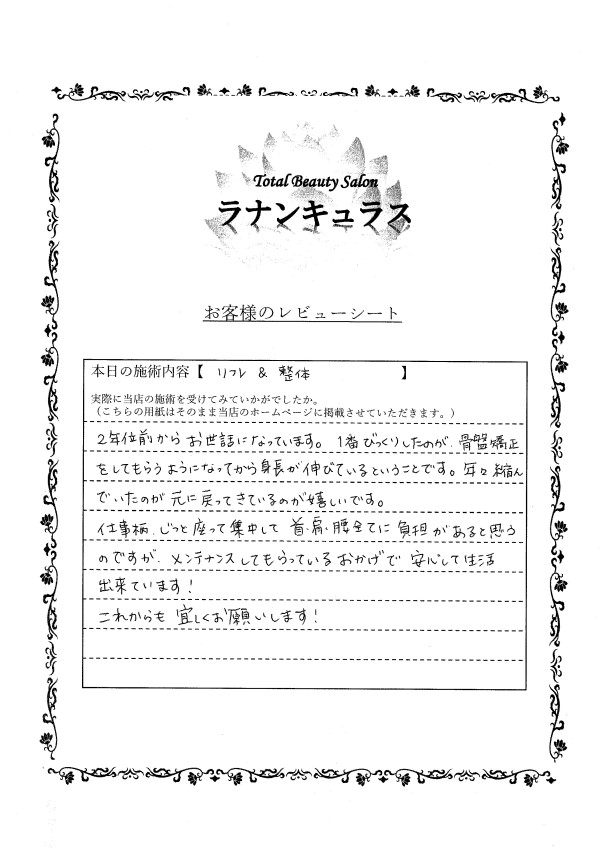 Total Beauty Salon
ラナンキュラス
お客様のレビューシート
本日の施術内容【 リフレ & 整体 】
実際に当店の施術を受けてみていかがでしたか。
（こちらの用紙はそのまま当店のホームページに掲載させていただきます。）
2年位前から お世話になっています。 1番びっくりしたのが、骨盤矯正
をしてもらうようになってから身長が伸びているということです。年々縮ん
でいたのが 元に戻ってきているのが嬉しいです。
仕事柄、じっと座って集中して 首、肩、腰全てに 負担があると思う
のですが、メンテナンスしてもらっているおかげで 安心して生活
出来ています！
これからも 宜しくお願いします！